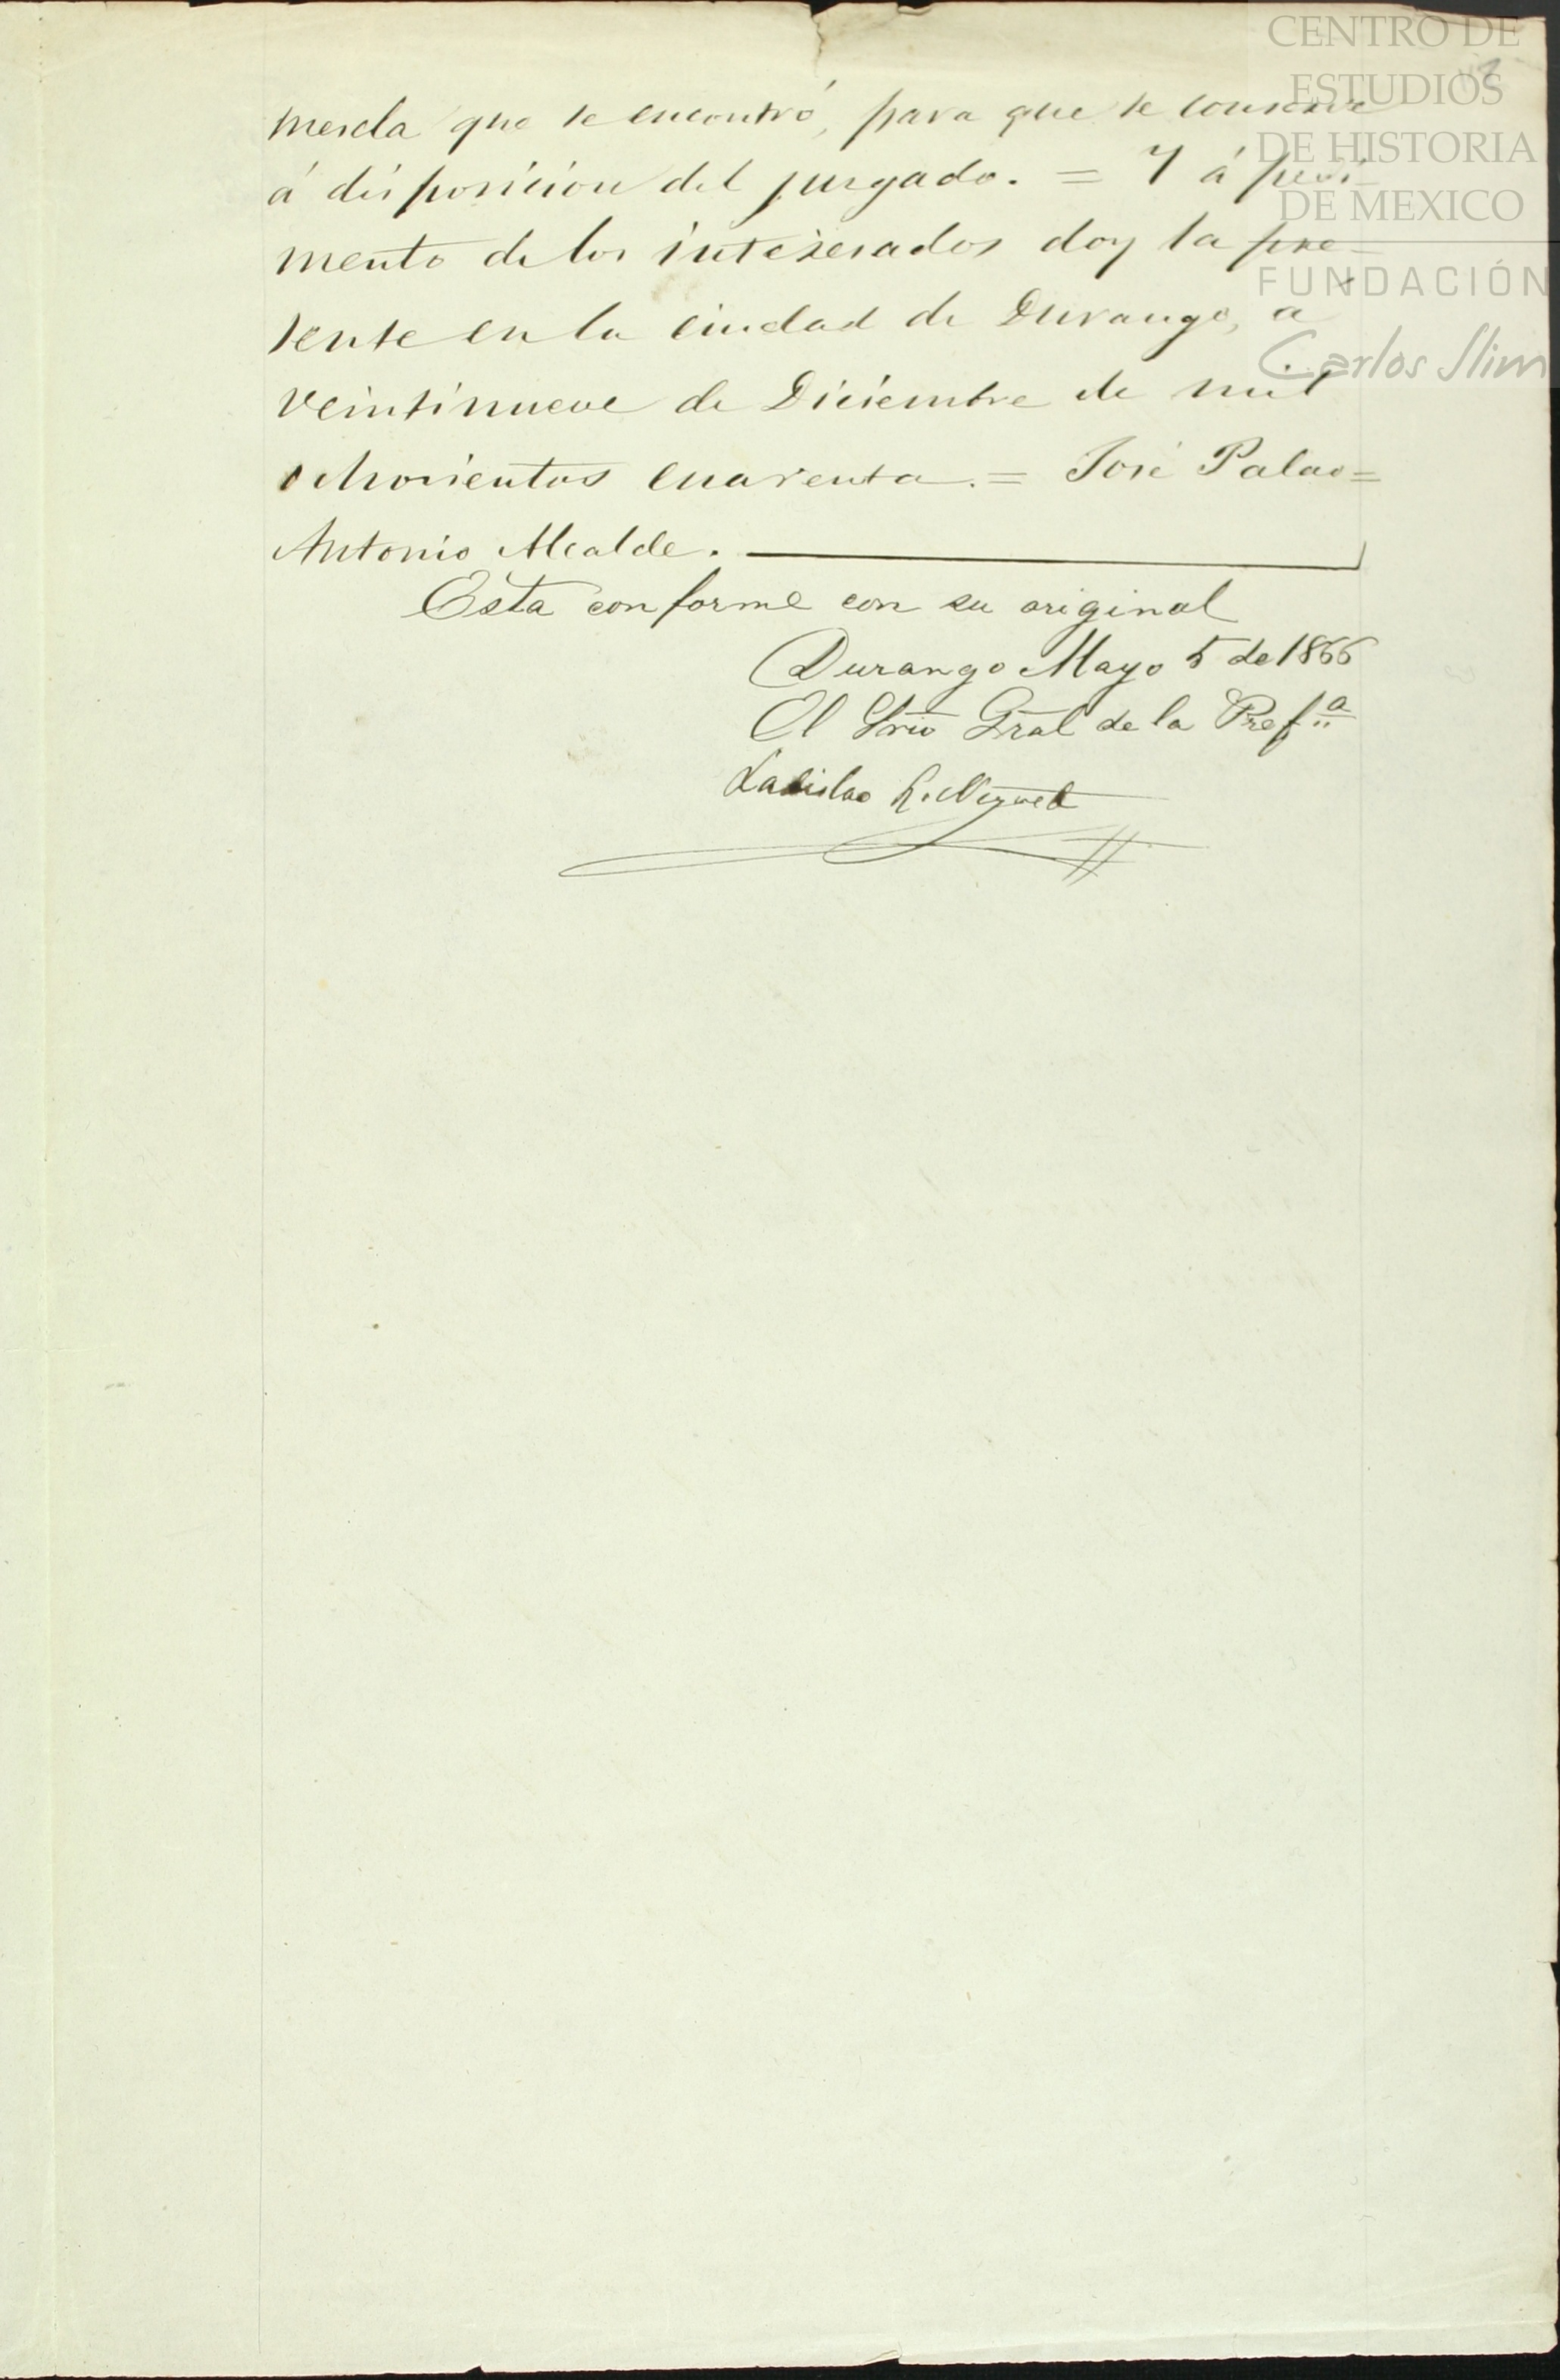 CENTRO DE
ESTUDIOS
DE HISTORIA
DE MEXICO
FUNDACIÓN
Carlos Slim
mescla que se encontró, para que se conserve
á disposicion del jusgado. = Y á pedi-
mento de los interesados doy la pre-
sente en la ciudad de Durango, a
veintinueve de Diciembre de mil
ochocientos cuarenta. = José Palao =
Antonio Alcalde.
Está conforme con su original
Durango Mayo 5 de 1866
El Srio Gral de la Pref.ª
Ladislao